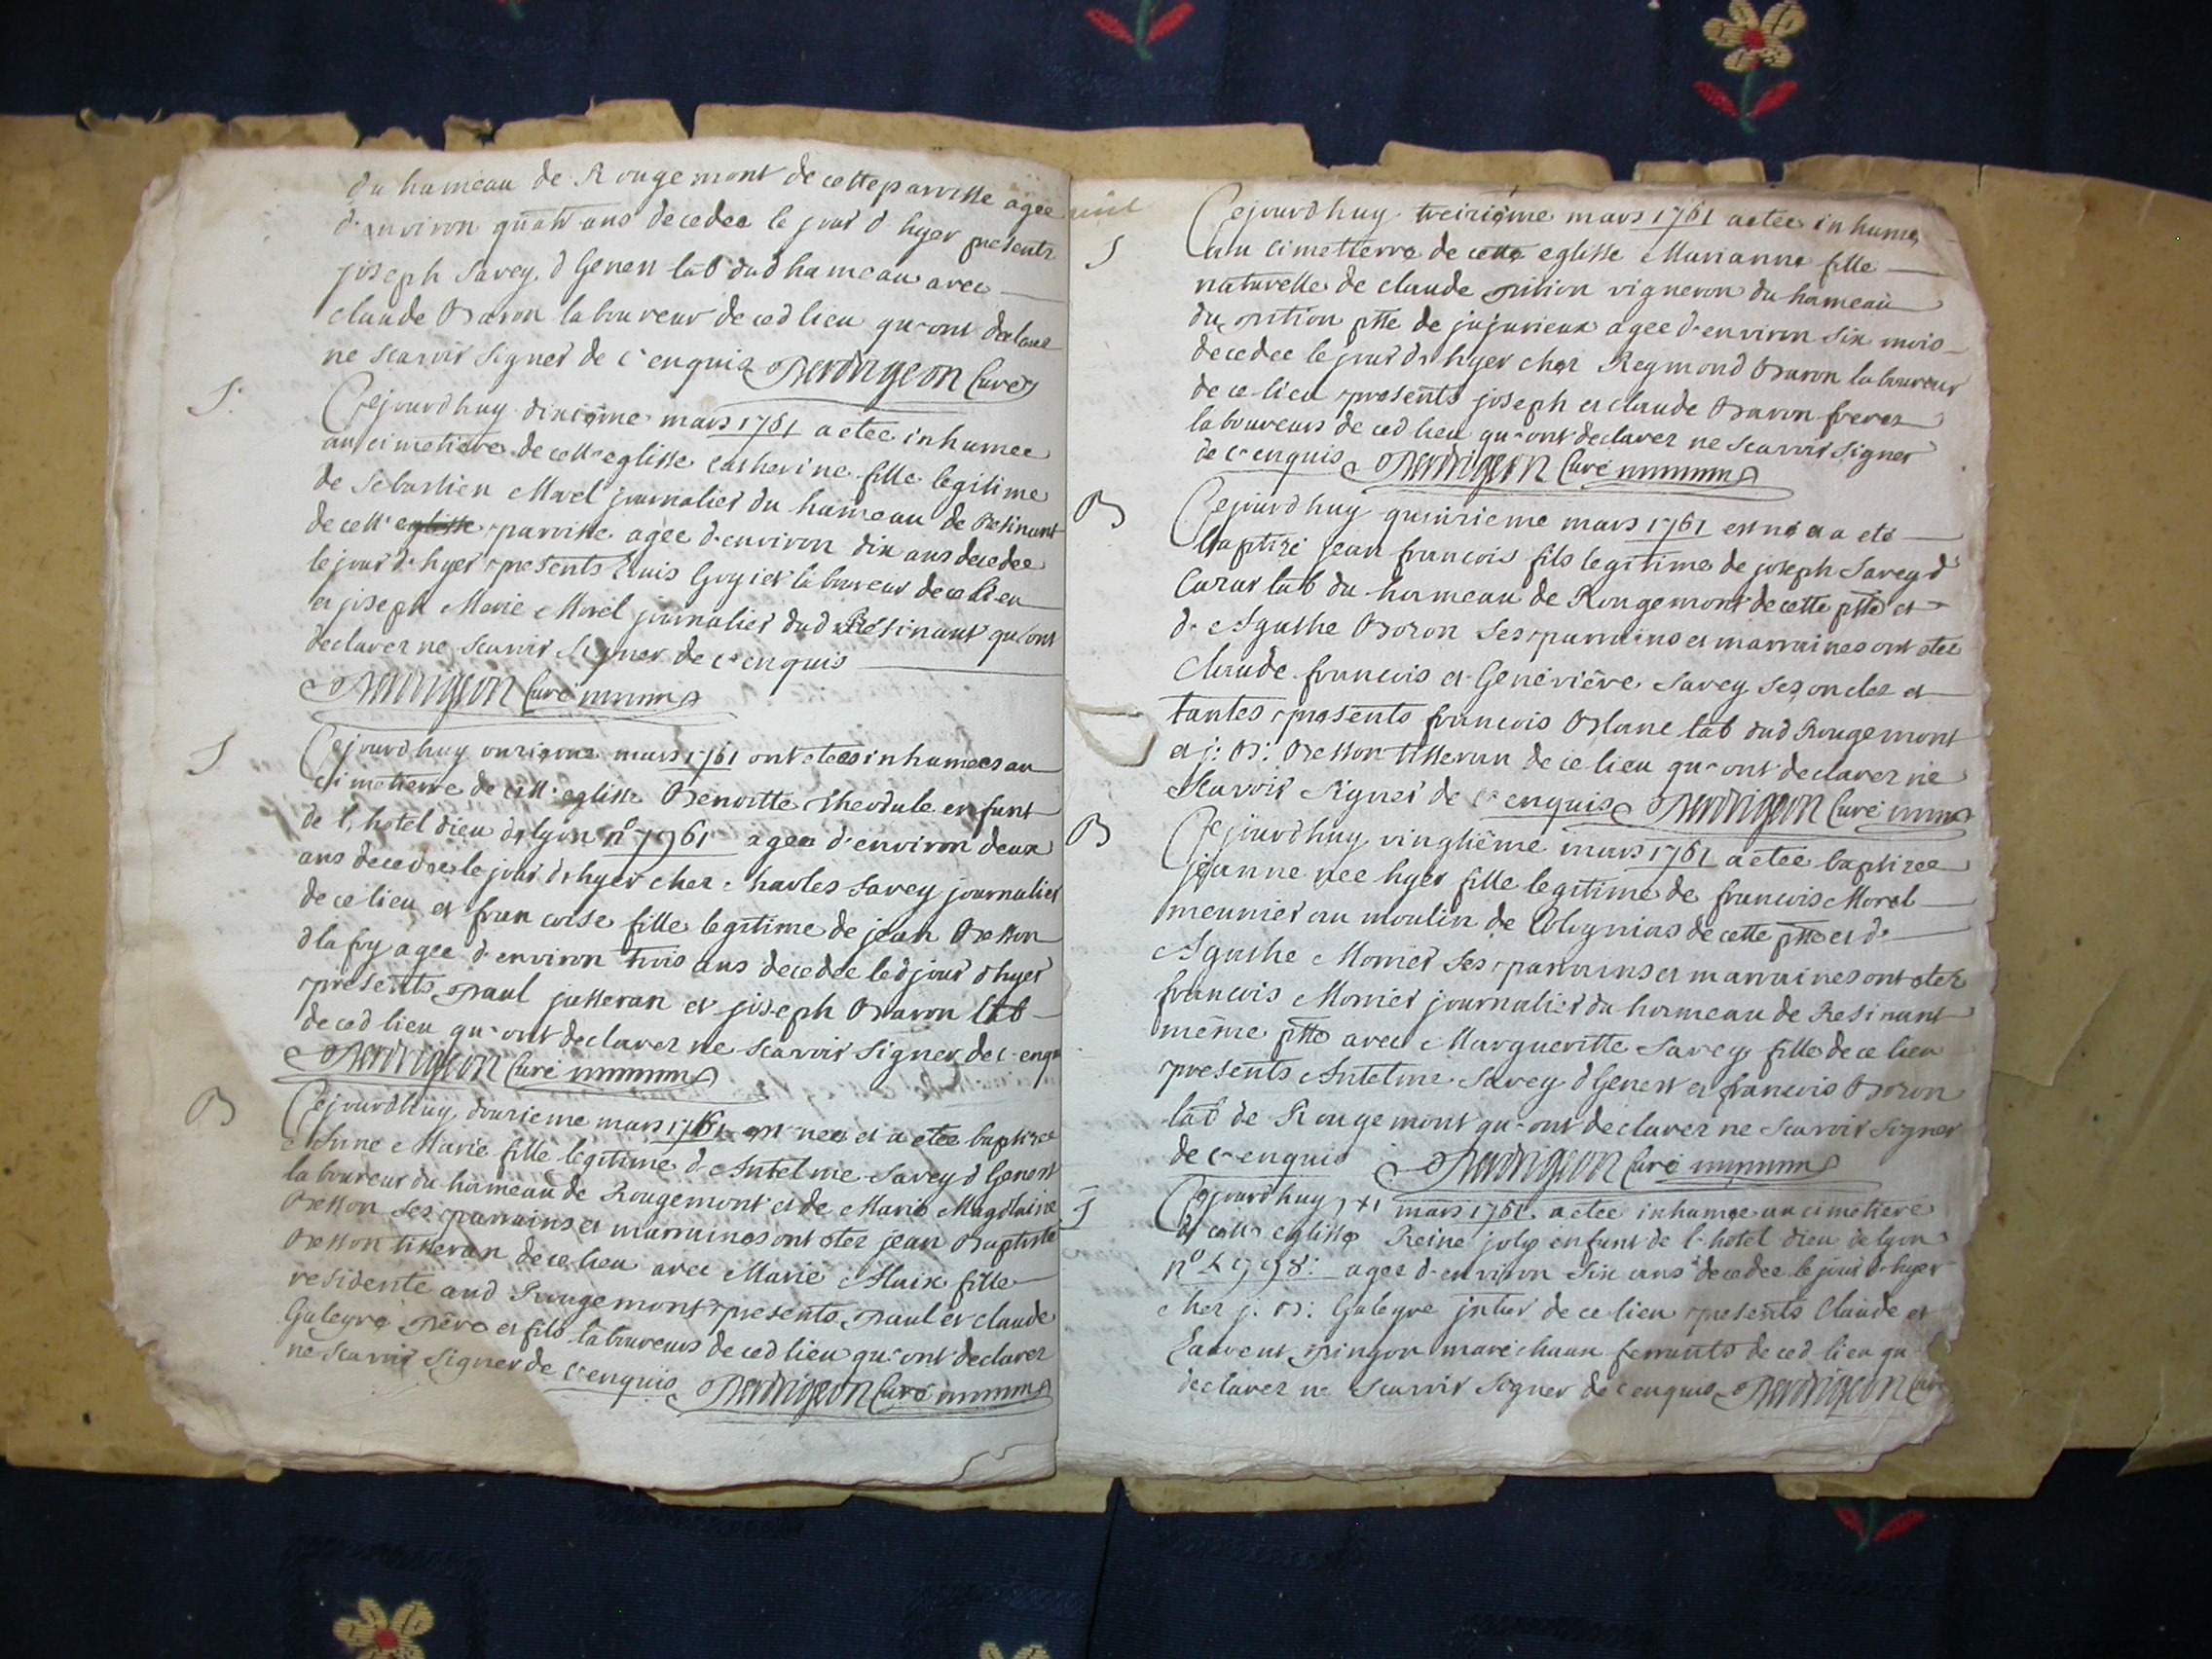 du hameau de Rougemont de cette parroisse agee
d'environ quatr ans decedee le jour d hyer presents
joseph Savey d Genen lab dud hameau avec
claude Baron laboureur de ced lieu qu'ont declare
ne scavoir signer de c enquis Perdrigeon Curé
S.
Cejourdhuy dixiême mars 1761 a etee inhumee
au cimetiere de cett eglisse catherine fille legitime
de Sebastien Morel journalier du hameau de Resinant
de cett parroisse agee d'environ dix ans decedee
le jour d'hyer presents Louis Goyiet laboureur de ce lieu
et joseph Marie Morel journalier dud Resinant qu'ont
declarer ne scavoir signer de c enquis
Perdrigeon Curé
S
Cejourdhuy onziême mars 1761 ont etees inhumees au
cimetierre de cett eglisse Benoitte Theodule enfant
de l'hotel dieu de lyon n° 7961 agee d'environ deux
ans decedee le jour d hyer chez charles Savey journalier
de ce lieu et francoise fille legitime de jean Besson
d la foy agee d'environ trois ans decedee led jour d hyer
presents paul jusseran et joseph Baron lab
de ced lieu qu'ont declarer ne scavoir signer de c enqu
Perdrigeon Curé
B
Cejourdhuy, douzieme mars 1761 est nee et a etee baptizee
Anne Marie fille legitime d Antelme Savey d Genest
laboureur du hameau de Rougemont et de Marie Magdlaine
Besson ses parrains et marraines ont etez jean Baptiste
Besson tisseran de ce lieu avec Marie Alaix fille
residente aud Rougemont presents paul et claude
Galeyre père et fils laboureurs de ced lieu qu'ont declarer
ne scavoir signer de c enquis Perdrigeon Curé
S
Cejourdhuy treiziême mars 1761 a etee inhumee
au cimetierre de cette eglisse Marianne fille
naturelle de claude pition vigneron du hameau
du pition psse de jujurieux agee d'environ six mois
decedee le jour d hyer chez Reymond Baron laboureur
de ce lieu presents joseph et claude Baron freres
laboureurs de ced lieu qu'ont declarer ne scavoir signer
de c enquis Perdrigeon Curé
B
Cejourdhuy quinzieme mars 1761 est né et a eté
baptizé jean francois fils legitime de joseph Savey d
Lazar lab du hameau de Rougemont de cette psse et
d' Agathe Bozon ses parrains et marraines ont etez
Claude francois et Geneviève Savey ses oncles et
tantes presents francois Blanc lab dud Rougemont
et j: B: Besson tisseran de ce lieu qu'ont declarer ne
scavoir signer de c enquis Perdrigeon Curé
B
Cejourdhuy vingtiême mars 1761 a etee baptizee
jeanne nee hyer fille legitime de francois Morel
meunier au moulin de Colognias de cette psse et d'
Agathe Monier ses parrains et marraines ont etez
francois Monier journalier du hameau de Resinant
même psse avec Margueritte Savey fille de ce lieu
presents Antelme Savey d Genest et francois Bozon
lab de Rougemont qu'ont declarer ne scavoir signer
de c enquis Perdrigeon Curé
S
Cejourdhuy mars 1761 a etee inhumee au cimetiere
d cette eglisse Reine joly enfant de l'hotel dieu de lyon
agee d'environ six ans decedee le jour d hyer
chez j. B: Galeyre de ce lieu presents Claude et
Laurent pingon marechaux ferrants de ced lieu qu
declarer ne scavoir signer de c enquis Perdrigeon Curé